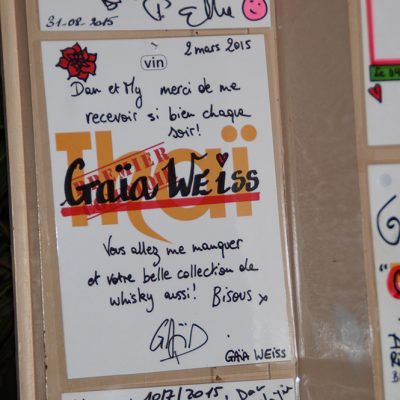 31-08-2015
Elle
2 mars 2015
vin
Dan et My merci de me
recevoir si bien chaque
soir!
Thaï
PREMIER
Gaïa WEISS
Vous allez me manquer
et votre belle collection de
whisky aussi! Bisous x
GAÏA WEISS
10/7/2015,